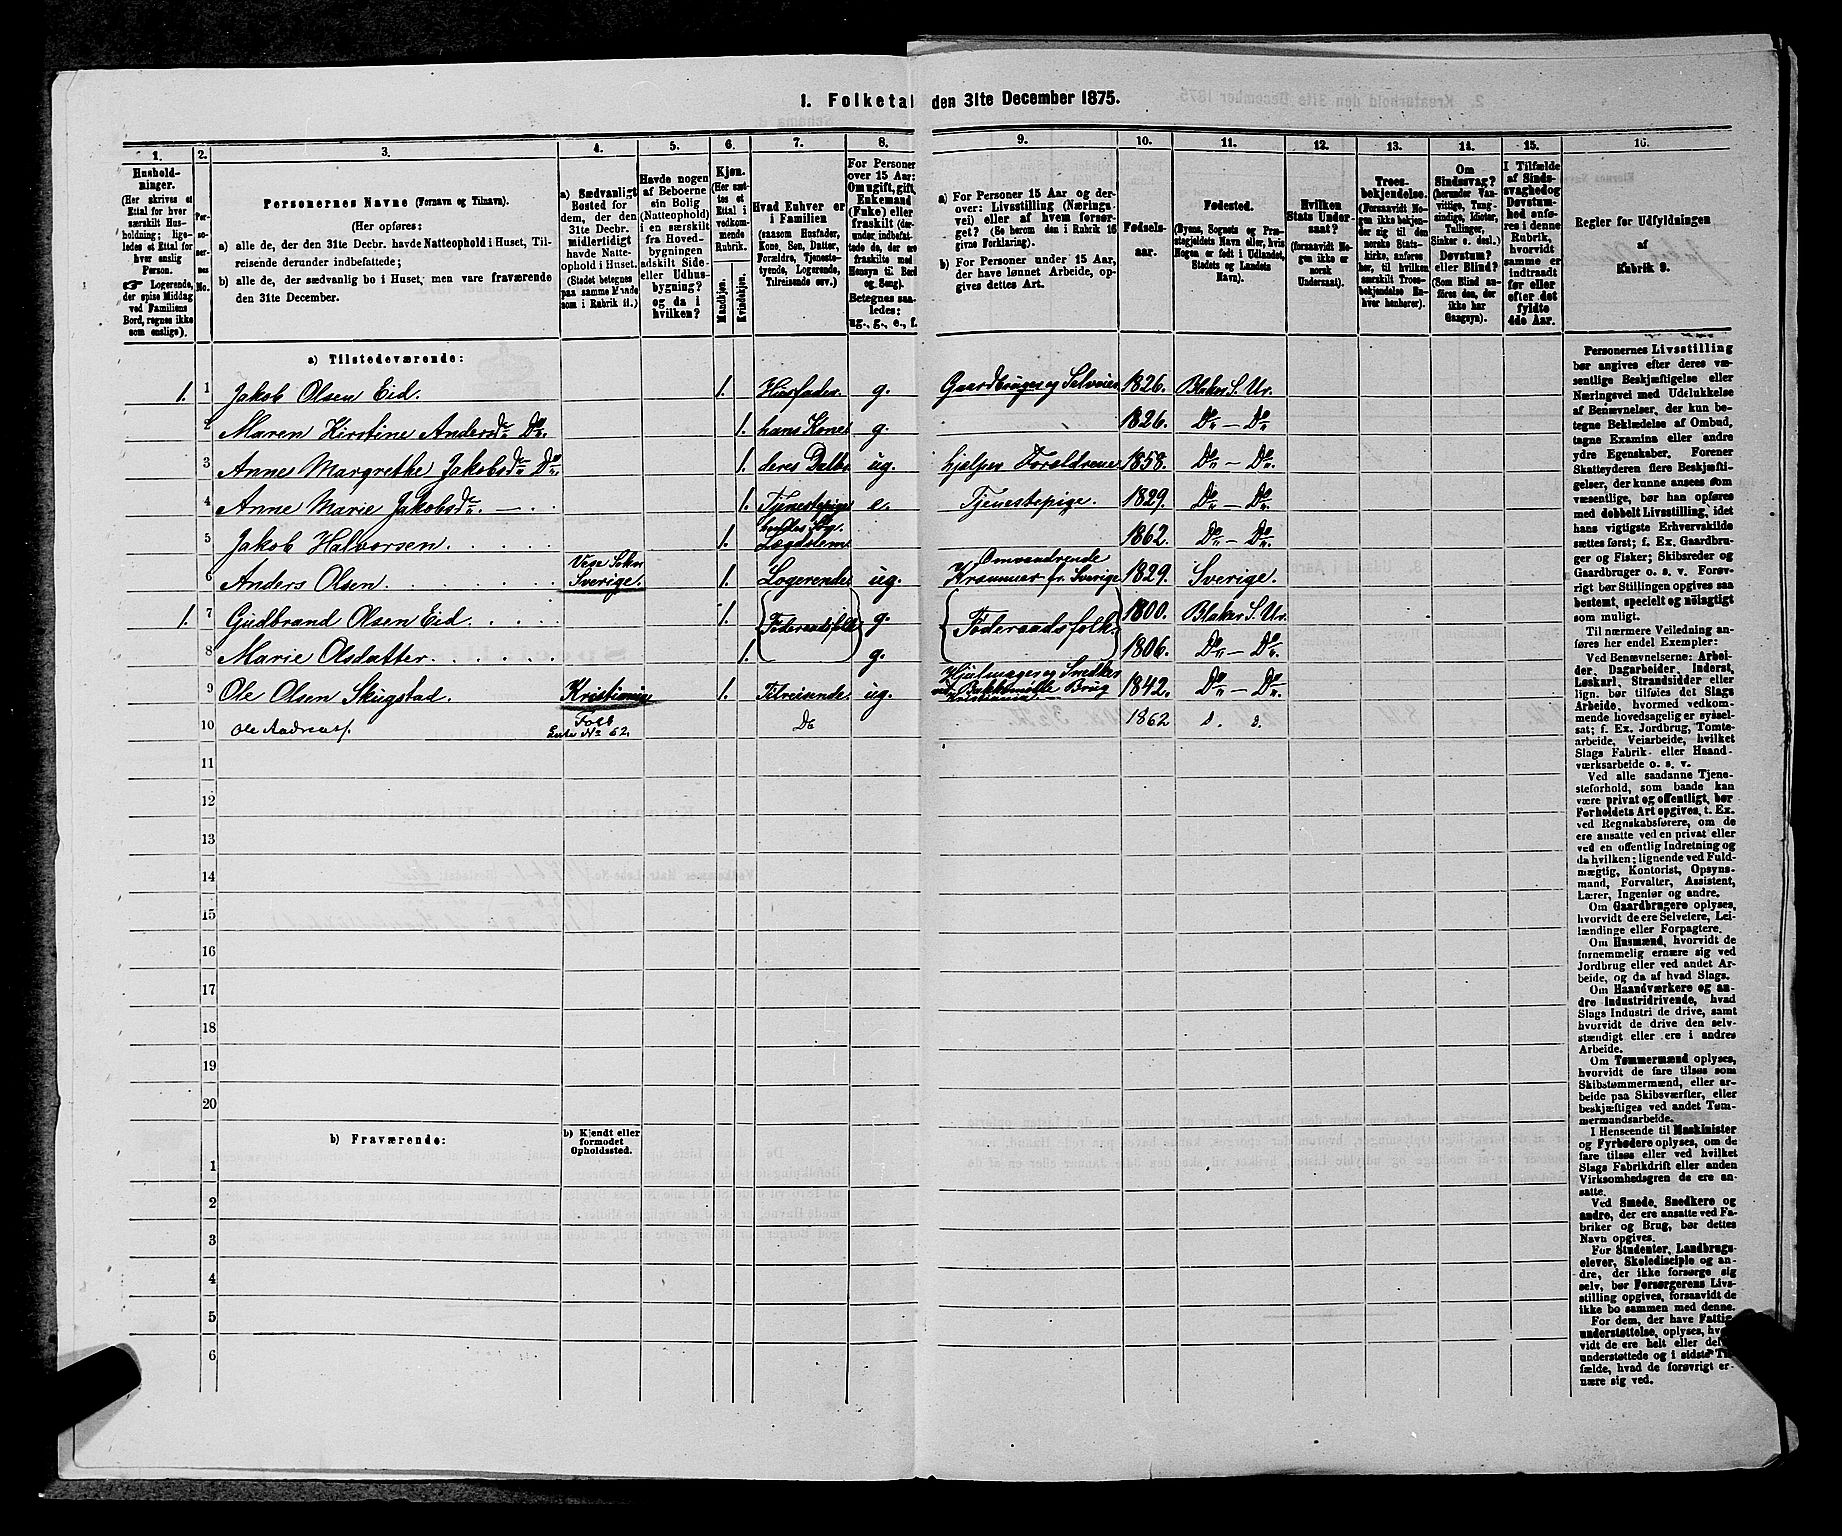 1. Folketal den 31te December 1875.
1.
Hushold-
ninger.
(Her skrives et
Ettal for hver
særskilt Hus-
holdning; lige-
ledes et Ettal for
hver enslig
Person.
☛ Logerende,
der spise Middag
ved Familiens
Bord, regnes ikke
som enslige).
2.
Per-
soner-
nes
No.
3.
Personernes Navne (Fornavn og Tilnavn).
(Her opføres:
a) alle de, der den 31te Decbr. havde Natteophold i Huset, Til-
reisende derunder indbefattede;
b) alle de, der sædvanlig bo i Huset, men vare fraværende
den 31te December.
4.
a) Sædvanligt
Bosted for
dem, der den
31te Decbr.
midlertidigt
havde Natte-
ophold i Huset.
(Stedet betegnes
paa samme Maade
som i Rubrik 11.)
5.
Havde nogen
af Beboerne
sin Bolig
(Natteophold)
i en særskilt
fra Hoved-
bygningen
adskilt Side-
eller Udhus-
bygning?
og da i
hvilken?
6.
Kjøn.
(Her sæt-
tes et
Ettal i
vedkom-
mende
Rubrik.
Mandkjøn.
Kvindekjøn.
7.
Hvad Enhver er
i Familien
(saasom Husfader,
Kone, Søn, Datter,
Forældre, Tjeneste-
tyende, Logerende,
Tilreisende osv.)
8.
For Personer
over 15 Aar:
Om ugift, gift,
Enkemand
(Enke) eller
fraskilt (der-
under indbefat-
tede de, der ere
fraskilte med
Hensyn til Bord
og Seng).
Betegnes saa-
ledes:
ug., g., e., f.
9.
a) For Personer 15 Aar og der-
over: Livsstilling (Nærings-
vei) eller af hvem forsør-
get? (Se herom den i Rubrik 16
givne Forklaring).
b) For Personer under 15 Aar,
der have lønnet Arbeide, op-
gives dettes Art.
10.
Fødsels-
aar.
11.
Fødested.
(Byens, Sognets og Præ-
stegjeldets Navn eller, hvis
Nogen er født i Udlandet,
Stedets og Landets
Navn).
12.
Hvilken
Stats Under-
saat?
(forsaavidt No-
gen ikke er
norsk
Undersaat).
13.
Troes-
bekjendelse.
(Forsaavidt No-
gen ikke bekjen-
der sig til den
norske Stats-
kirke, anføres
her, til hvilken
særskilt Troes-
bekjendelse En-
hver henhører).
14.
Om
Sindssvag?
(herunder Van-
vittige, Tung-
sindige, Idioter,
Tullinger,
Sinker o. desl.)
Døvstum?
eller Blind?
(Som Blind an-
føres den, der
ikke har
Gangsyn).
15.
I Tilfælde
af Sinds-
svaghed og
Døvstum-
hed anfø-
res i denne
Rubrik,
hvorvidt
samme er
indtraadt
før eller
efter det
fyldte
4de Aar.
16.
Regler for Udfyldningen
af
Rubrik 9.
a) Tilstedeværende:
1. 1 Jakob Olsen Eid. 1. Husfader. g. Gaardbruger og Selveier 1826. Blaker S. Ur.
2 Maren Kirstine Andersdr. Do. 1. hans Kone g. 1826. Do — Do
3 Anne Margrethe Jakobsdr. Do. 1. deres Datter ug. hjelper Forældrene 1858. Do — Do
4 Anne Marie Jakobsdr. 1. Tjenestepige e. Tjenestepige. 1829. Do — Do
5 Jakob Halvorsen. 1. Lægdslem 1862. Do — Do
6 Anders Olsen. Sverige. 1. Logerende ug. Omvandrende Kræmmer fr. Sverige 1829. Sverige.
1. 7 Gudbrand Olsen Eid. 1. Føderaadsfolk g. Føderaadsfolk. 1800. Blaker S. Ur.
8 Marie Olsdatter. 1. g. 1806. Do — Do
9 Ole Olsen Skugstad. Kristiania 1. Tilreisende. ug. Hjulmager og Snedker Brug Kristiania 1842. Do — Do
10 Ole Andreas No 62. Do 1862 d. d.
11
12
13
14
15
16
17
18
19
20
b) Fraværende:
b) Kjendt eller
formodet
Opholdssted.
1
2
3
4
5
6
Personernes Livsstilling
bør angives efter deres væ-
sentlige Beskjæftigelse eller
Næringsvei med Udelukkelse
af Benævnelser, der kun be-
tegne Beklædelse af Ombud,
tagne Examina eller andre
ydre Egenskaber. Forener
Skatteyderen flere Beskjæfti-
gelser, der kunne ansees som
væsentlige, bør han opføres
med dobbelt Livsstilling, idet
hans vigtigste Erhvervskilde
sættes først; f. Ex. Gaardbru-
ger og Fisker; Skibsreder og
Gaardbruger o. s. v. Forøv-
rigt bør Stillingen opgives saa
bestemt, specielt og nøiagtigt
som muligt.
Til nærmere Veiledning an-
føres her endel Exempler:
Ved Benævnelserne: Arbei-
der, Dagarbeider, Inderst,
Løskarl, Strandsidder eller
lign. bør tilføies det Slags
Arbeide, hvormed vedkom-
mende hovedsagelig er syssel-
sat; f. Ex. Jordbrug, Tomte-
arbeide, Veiarbeide, hvilket
Slags Fabrik- eller Haand-
værksarbeide o. s. v.
Ved alle saadanne Tjene-
steforhold, som baade kan
være privat og offentligt, bør
Forholdets Art opgives, t. Ex.
ved Regnskabsførere, om de
ere ansatte ved en privat eller
ved en offentlig Indretning og
da hvilken; lignende ved Fuld-
mægtig, Kontorist, Opsyns-
mand, Forvalter, Assistent,
Lærer, Ingeniør og andre.
Om Gaardbrugere oplyses,
hvorvidt de ere Selveiere, Lei-
lændinge eller Forpagtere.
Om Husmænd, hvorvidt de
fornemmelig ernære sig ved
Jordbrug eller ved andet Ar-
beide, og da af hvad Slags.
Om Haandværkere og an-
dre Industridrivende, hvad
Slags Industri de drive, samt
hvorvidt de drive den selv-
stændigt eller ere i andres
Arbeide.
Om Tømmermænd oplyses,
hvorvidt de fare tilsøs som
Skibstømmermænd, eller ar-
beide paa Skibsværfter, eller
beskjæftiges ved andet Tøm-
mermandsarbeide.
I Henseende til Maskinister
og Fyrbødere oplyses, om de
fare tilsøs eller ved hvilket
Slags Fabrikdrift eller anden
Virksomhedsgren de ere an-
satte.
Ved Smede, Snedkere og
andre, der ere ansatte ved Fa-
briker og Brug, bør dettes
Navn opgives.
For Studenter, Landbrugs-
elever, Skoledisciple og an-
dre, der ikke forsørge sig
selv, bør Forsørgerens Livs-
stilling opgives, forsaavidt de
ikke bo sammen med denne.
For dem, der have Fattig-
understøttelse, oplyses, hvor-
vidt de ere helt eller delvis
understøttede og i sidste Til-
fælde, hvad de forøvrigt er-
nære sig ved.